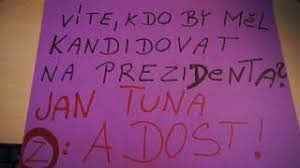 VÍTE, KDO BY MĚL
KANDIDOVAT
NA PREZIDENTA?
JAN TUNA
Z: A DOST!